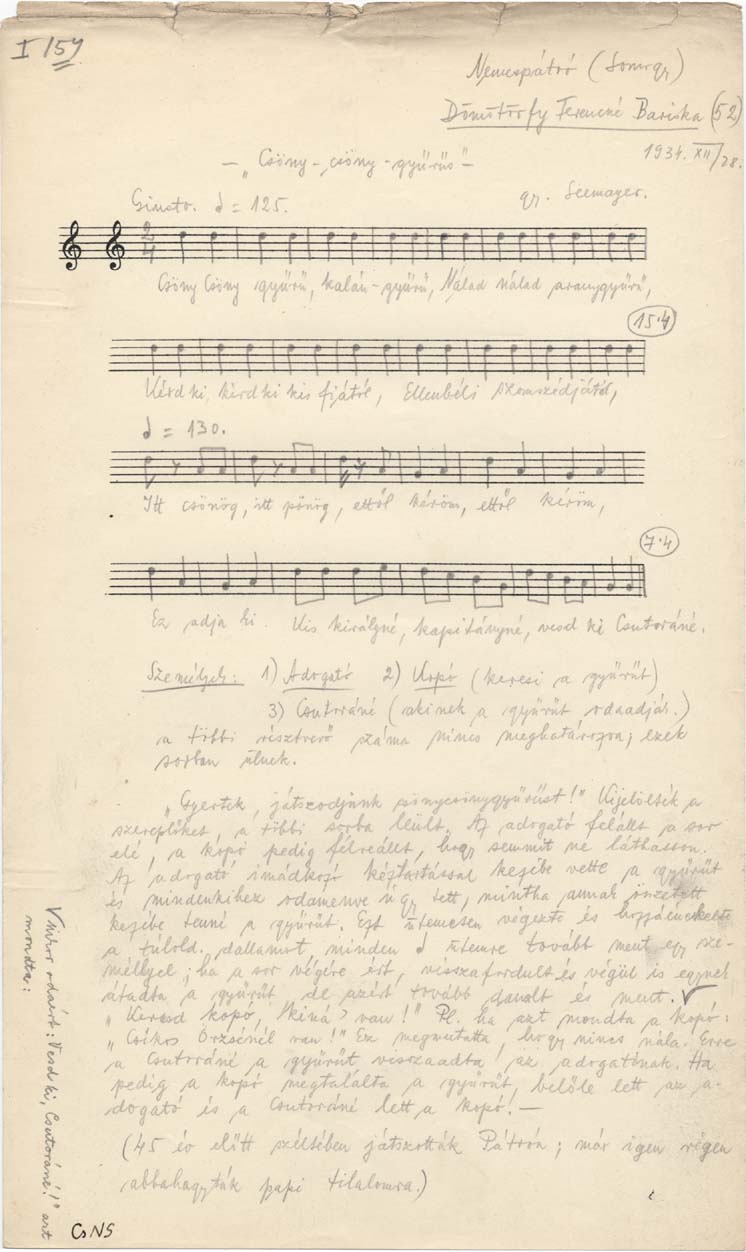 I 154
Nemespátró (Somogy)
Dömötörfy Ferencné Bariska (52)
1934. XII/28.
– „Csöny-csöny-gyűrűs” –
Giusto. ♩ = 125.
gy. Seemayer.
2/4
Csöny Csöny gyűrű, kalán-gyűrű, Nálad nálad aranygyűrű,
15·4
Kérd ki, kérd ki kis fijától, Ellenbéli szomszédjától,
♩ = 130.
Itt csönög, itt pönög, ettől kéröm, ettől kéröm,
7·4
Ez adja ki. Kis királyné, kapitányné, vesd ki Csutoráné.
Személyek: 1) Adogató 2) Kopó (keresi a gyűrűt)
3) Csutoráné (akinek a gyűrűt odaadják.)
a többi résztvevő száma nincs meghatározva; ezek
sorban ülnek.
„Gyertek, játszodjunk csönycsönygyűrűst!” Kijelölték a
szereplőket, a többi sorba leült. Az adogató felállt a sor
elé, a kopó pedig félreállt, hogy semmit ne láthasson.
Az adogató imádkozó kéztartással kezébe vette a gyűrűt
és mindenkihez odamenve úgy tett, mintha annak összetett
kezébe tenné a gyűrűt. Ezt ütemesen végezte és hozzáénekelte
a túlold. dallamot minden ♩ ütemre tovább ment egy sze-
méllyel; ha a sor végére ért, visszafordult és végül is egynek
átadta a gyűrűt de azért tovább danolt és ment. √
„Keresd kopó, kiná> van!” Pl. ha azt mondta a kopó:
„Csikos Örzsénél van!” Ez megmutatta, hogy nincs nála. Erre
a Csutoráné a gyűrűt visszaadta az adogatónak. Ha
pedig a kopó megtalálta a gyűrűt, belőle lett az a-
dogató és a Csutoráné lett a kopó! –
(45 év előtt széltében játszották Pátrón; már igen régen
abbahagyták papi tilalomra.)
√ Mikor odaért: Vesd ki, Csutoráné!” azt
mondta:
CsNS